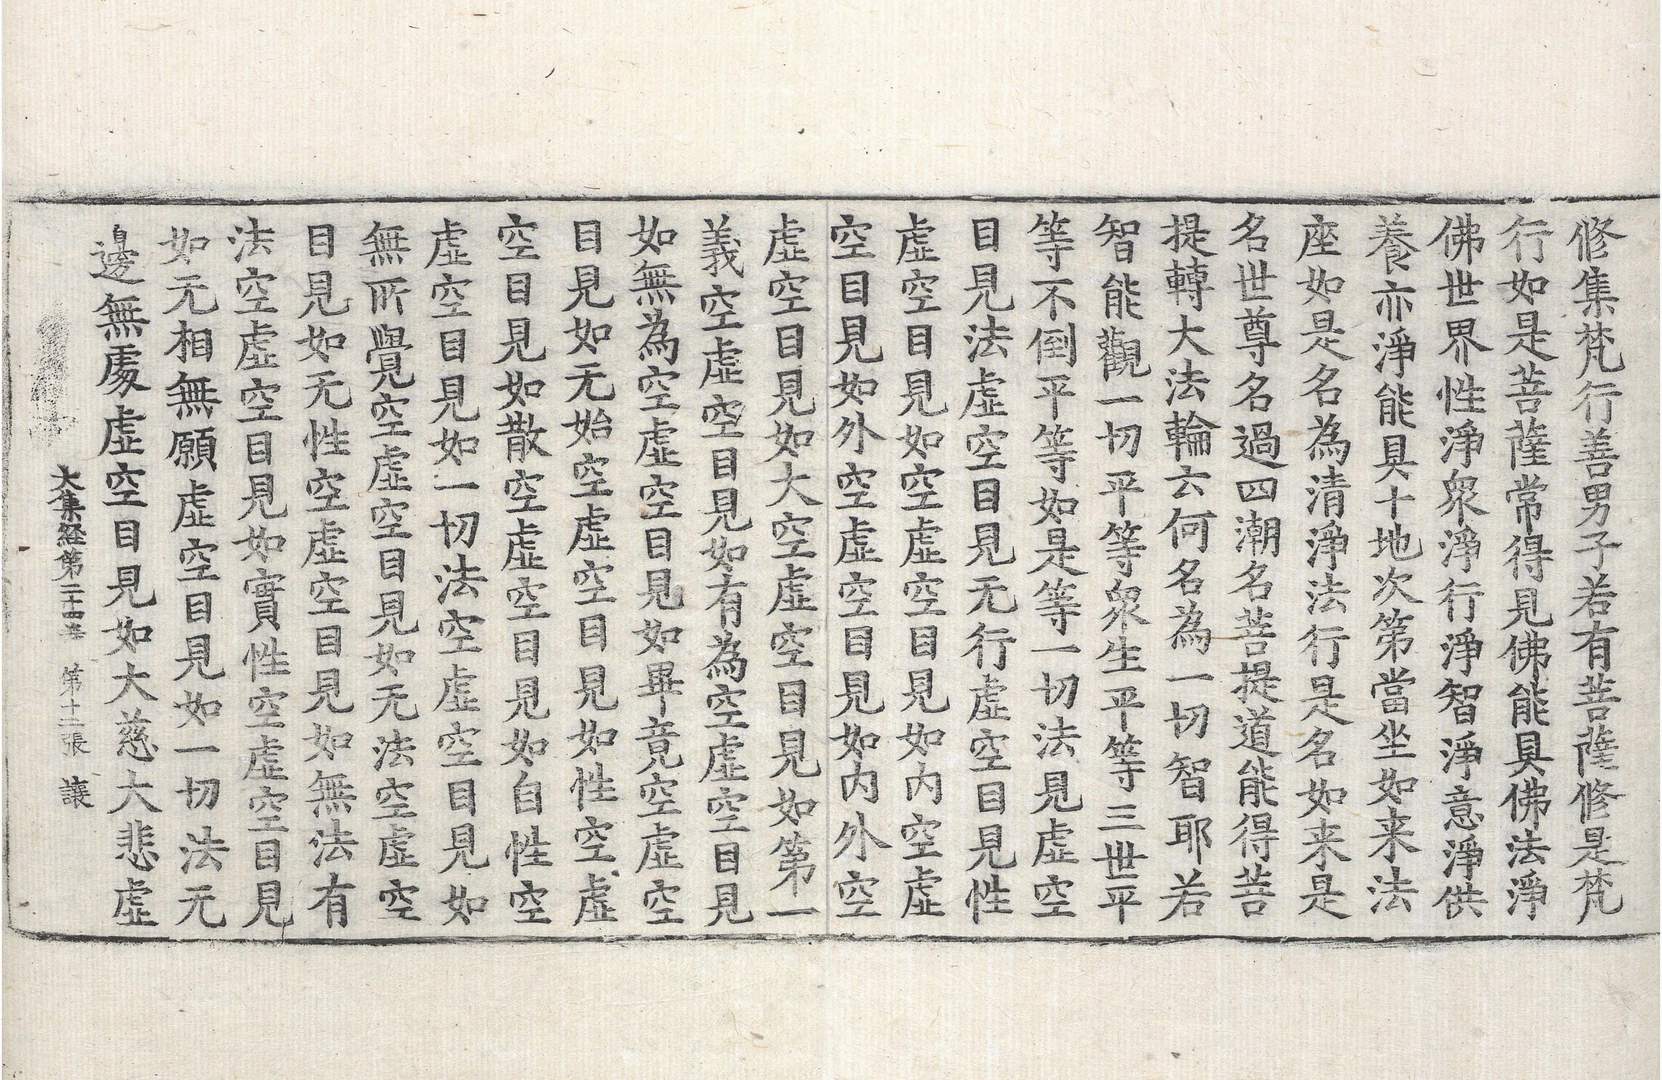 修集梵行善男子若有菩薩修是梵
行如是菩薩常得見佛能具佛法淨
佛世界性淨衆淨行淨智淨意淨供
養亦淨能具十地次第當坐如来法
座如是名為清淨法行是名如来是
名世尊名過四潮名菩提道能得菩
提轉大法輪云何名為一切智耶若
智能觀一切平等衆生平等三世平
等不倒平等如是等一切法見虛空
目見法虛空目見无行虛空目見性
虛空目見如空虛空目見如内空虛
空目見如外空虛空目見如内外空
虛空目見如大空虛空目見如第一
義空虛空目見如有為空虛空目見
如無為空虛空目見如畢竟空虛空
目見如无始空虛空目見如性空虛
空目見如散空虛空目見如自性空
虛空目見如一切法空虛空目見如
無所覺空虛空目見如无法空虛空
目見如无性空虛空目見如無法有
法空虛空目見如實性空虛空目見
如无相無願虛空目見如一切法无
邊無處虛空目見如大慈大悲虛
大集経第二十四卷　第十二張　讓